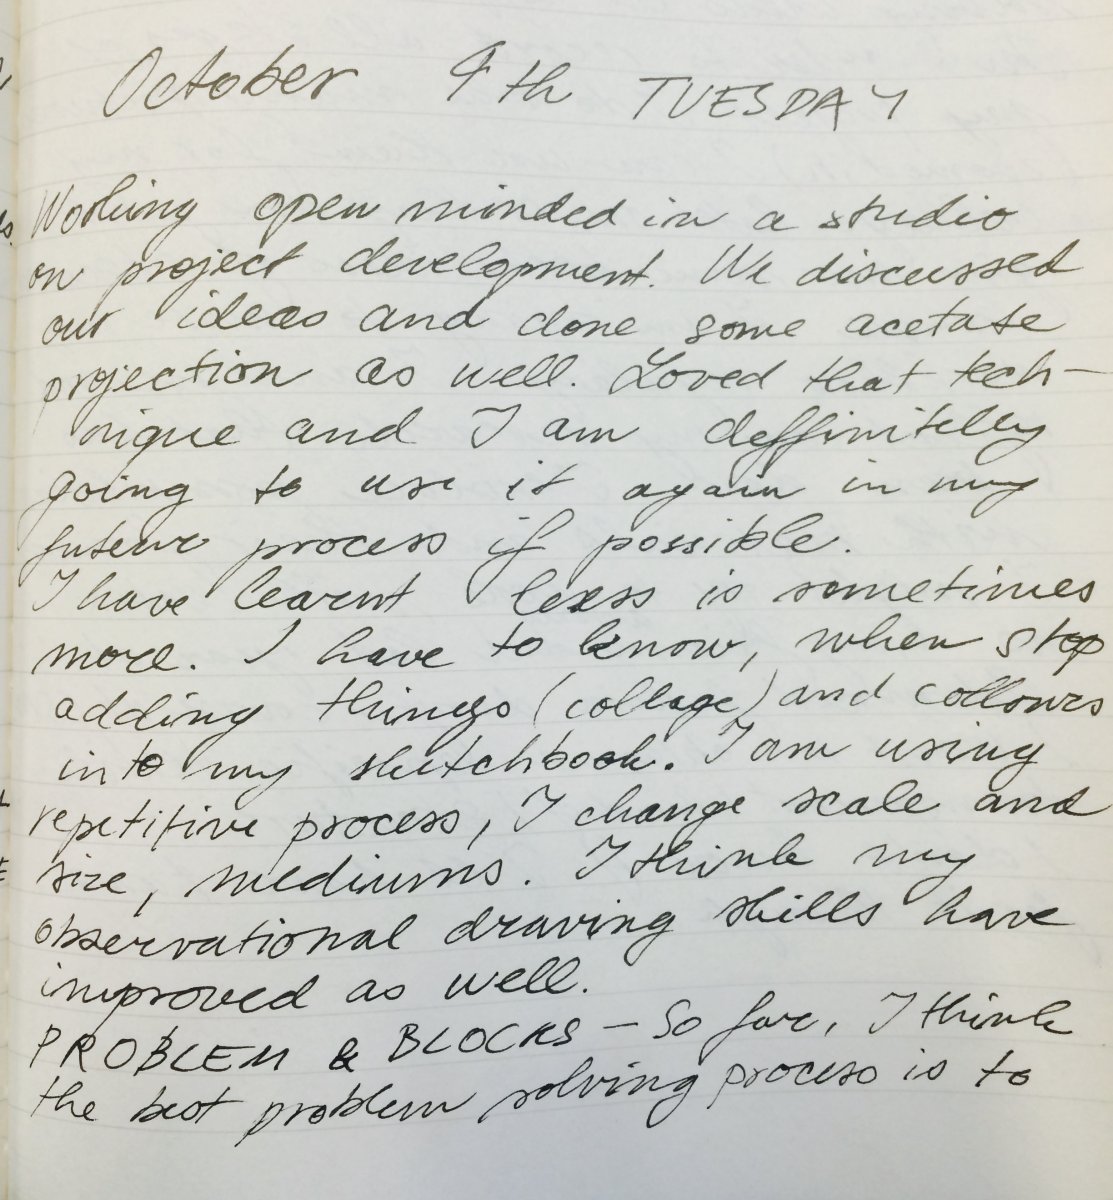 October 4th TUESDAY
Working open minded in a studio
on project development. We discussed
our ideas and done some acetate
projection as well. Loved that tech-
nique and I am deffinitelly
going to use it again in my
future process if possible.
I have learnt less is sometimes
more. I have to know, when stop
adding things (collage) and collours
into my sketchbook. I am using
repetitive process, I change scale and
size, mediums. I think my
observational drawing skills have
improved as well.
PROBLEM & BLOCKS - So far, I think
the best problem solving process is to